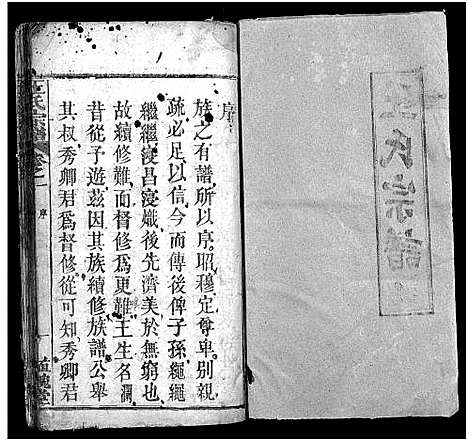 氏宗譜
序
族之有譜所以序昭穆定尊卑別親
疏必足以信今而傳後俾子孫繩繩
繼繼寖昌寖熾後先濟美於無窮也
故續修難而督修爲更難王生名瀾
昔從予遊茲因其族續修族譜公舉
其叔秀卿君爲督修從可知秀卿君
氏宗譜
卷之一
序
槐堂